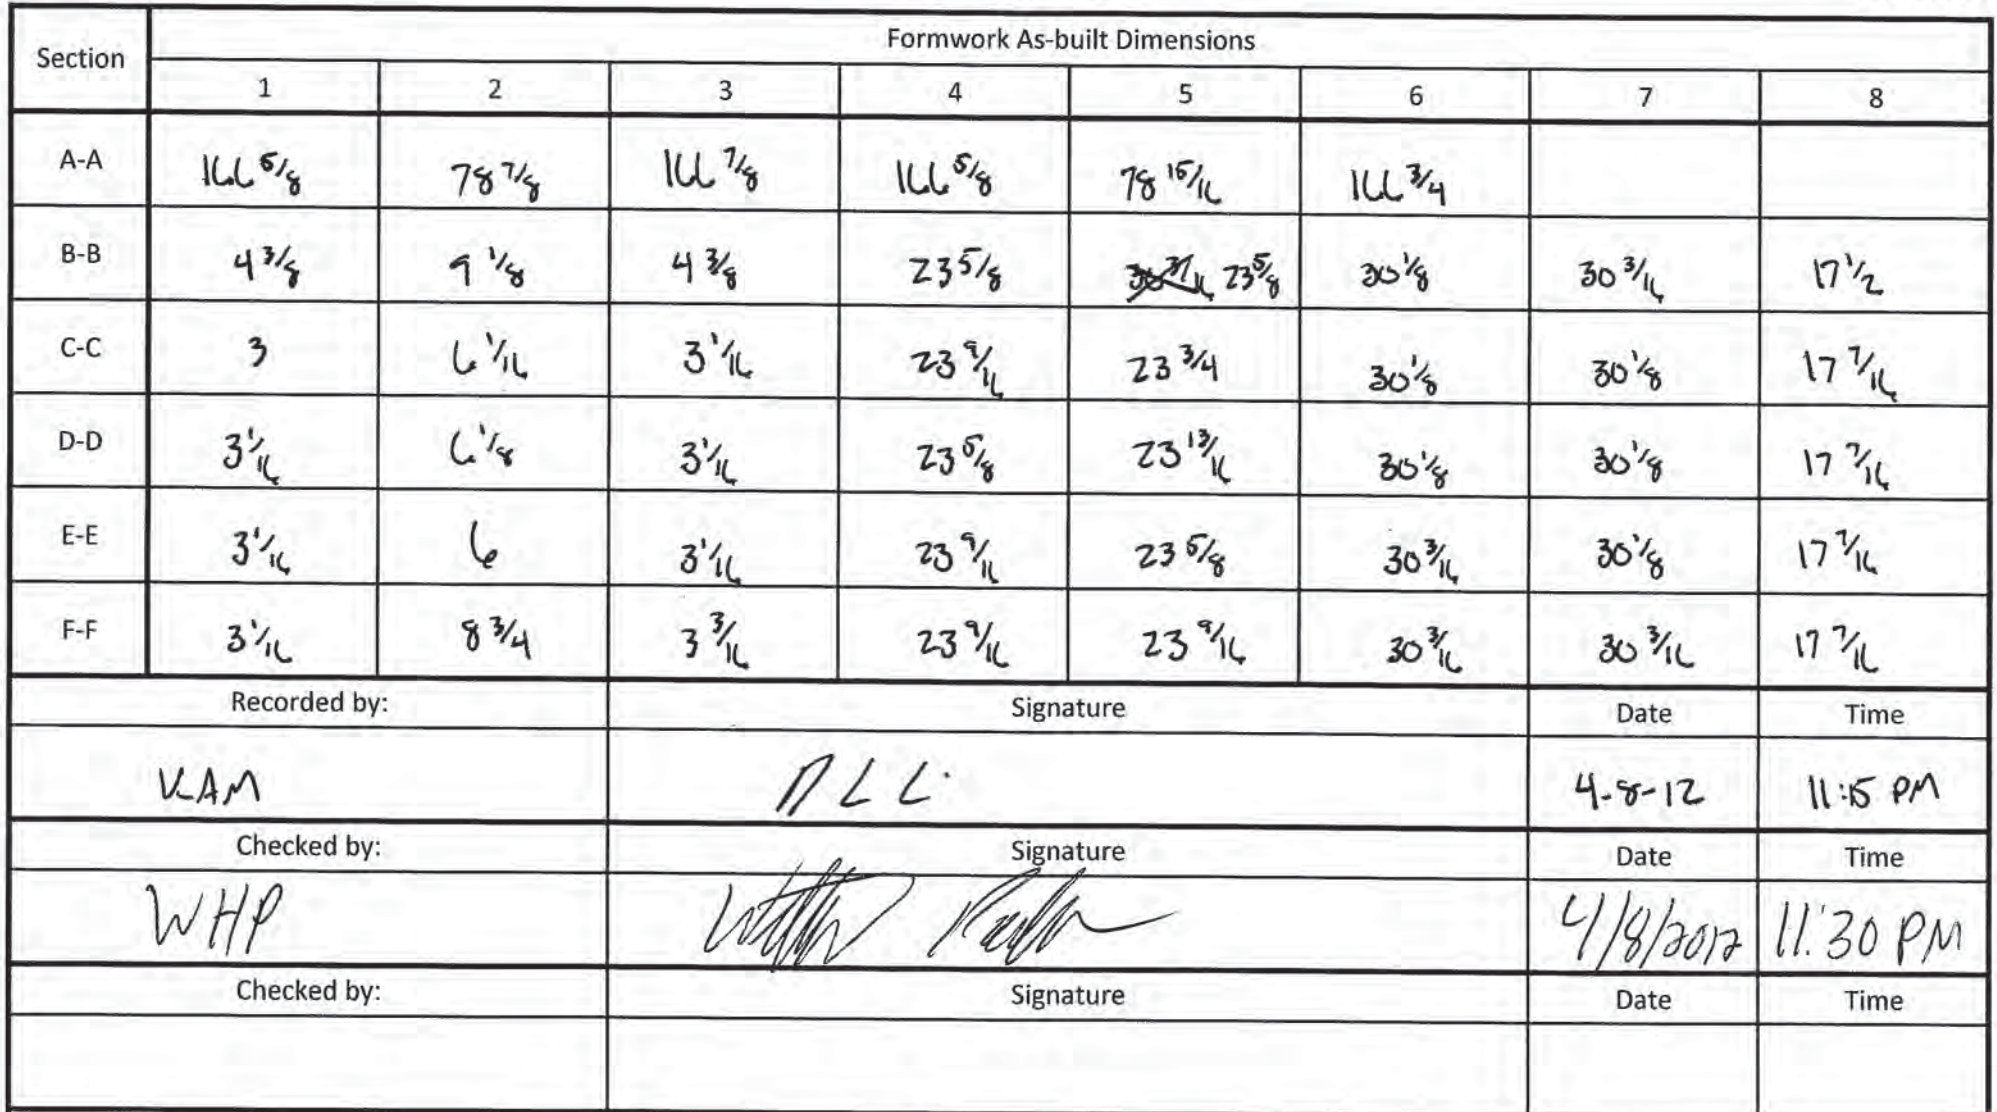 Formwork As-built Dimensions
Section 1 2 3 4 5 6 7 8
A-A 166 5/8 78 7/8 166 7/8 166 5/8 78 15/16 166 3/4
B-B 4 3/8 9 1/8 4 3/8 23 5/8 30 3/16 23 5/8 30 1/8 30 3/16 17 1/2
C-C 3 6 1/16 3 1/16 23 9/16 23 3/4 30 1/8 30 1/8 17 7/16
D-D 3 1/16 6 1/8 3 1/16 23 5/8 23 13/16 30 1/8 30 1/8 17 7/16
E-E 3 1/16 6 3 1/16 23 9/16 23 5/8 30 3/16 30 1/8 17 7/16
F-F 3 1/16 8 3/4 3 3/16 23 9/16 23 9/16 30 3/16 30 3/16 17 7/16
Recorded by: Signature Date Time
KAM 4-8-12 11:15 PM
Checked by: Signature Date Time
WHP 4/8/2012 11:30 PM
Checked by: Signature Date Time